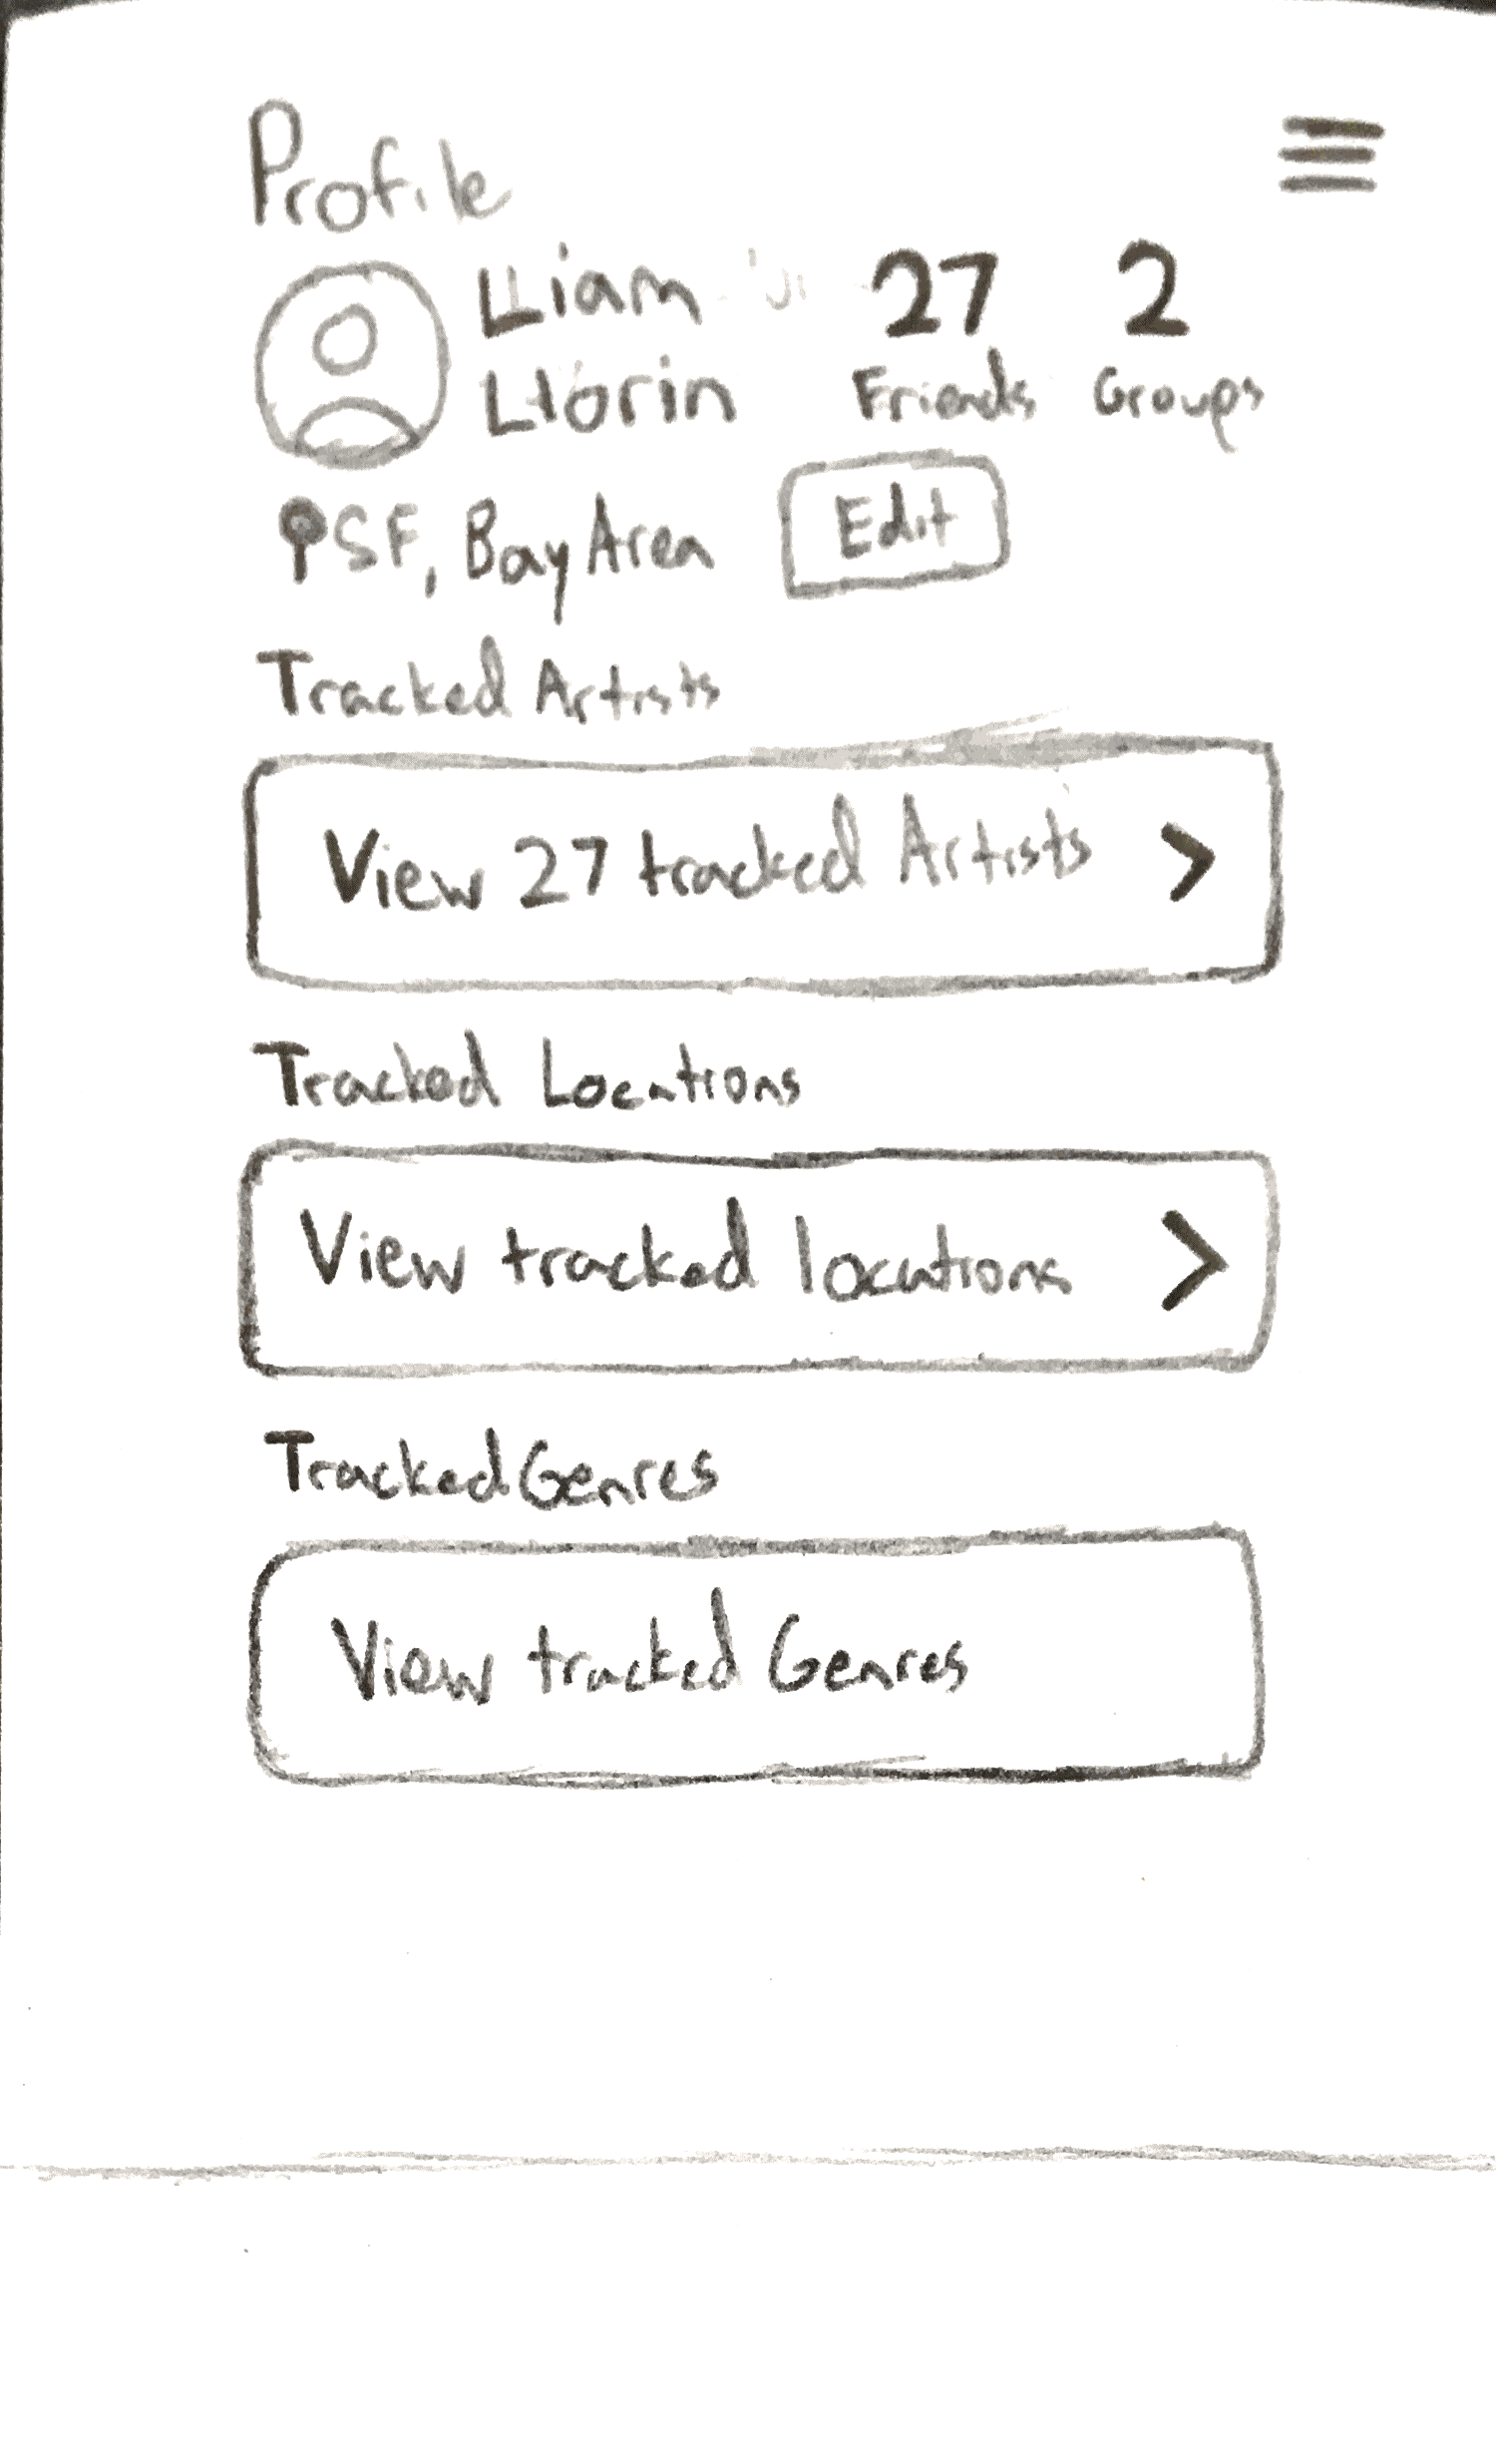 Profile
Liam
Llorin
27
Friends
2
Groups
SF, Bay Area
Edit
Tracked Artists
View 27 tracked Artists >
Tracked Locations
View tracked locations >
Tracked Genres
View tracked Genres